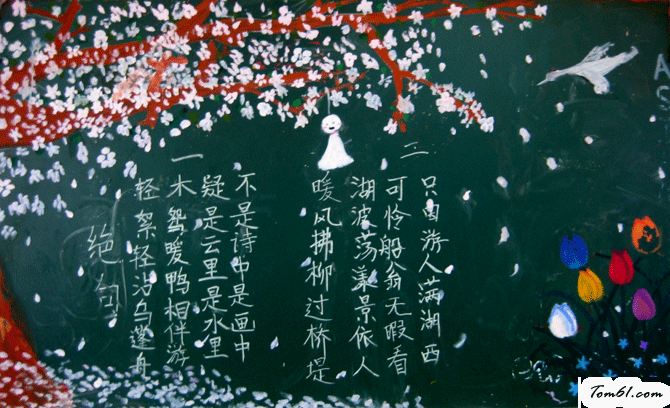 绝句
一
轻絮轻沾乌蓬舟
木鸳暖鸭相伴游
疑是云里是水里
不是诗中是画中
二
暖风拂柳过桥堤
湖波荡漾景依人
可怜船翁无暇看
只因游人满湖西
A
S
Tom61.com